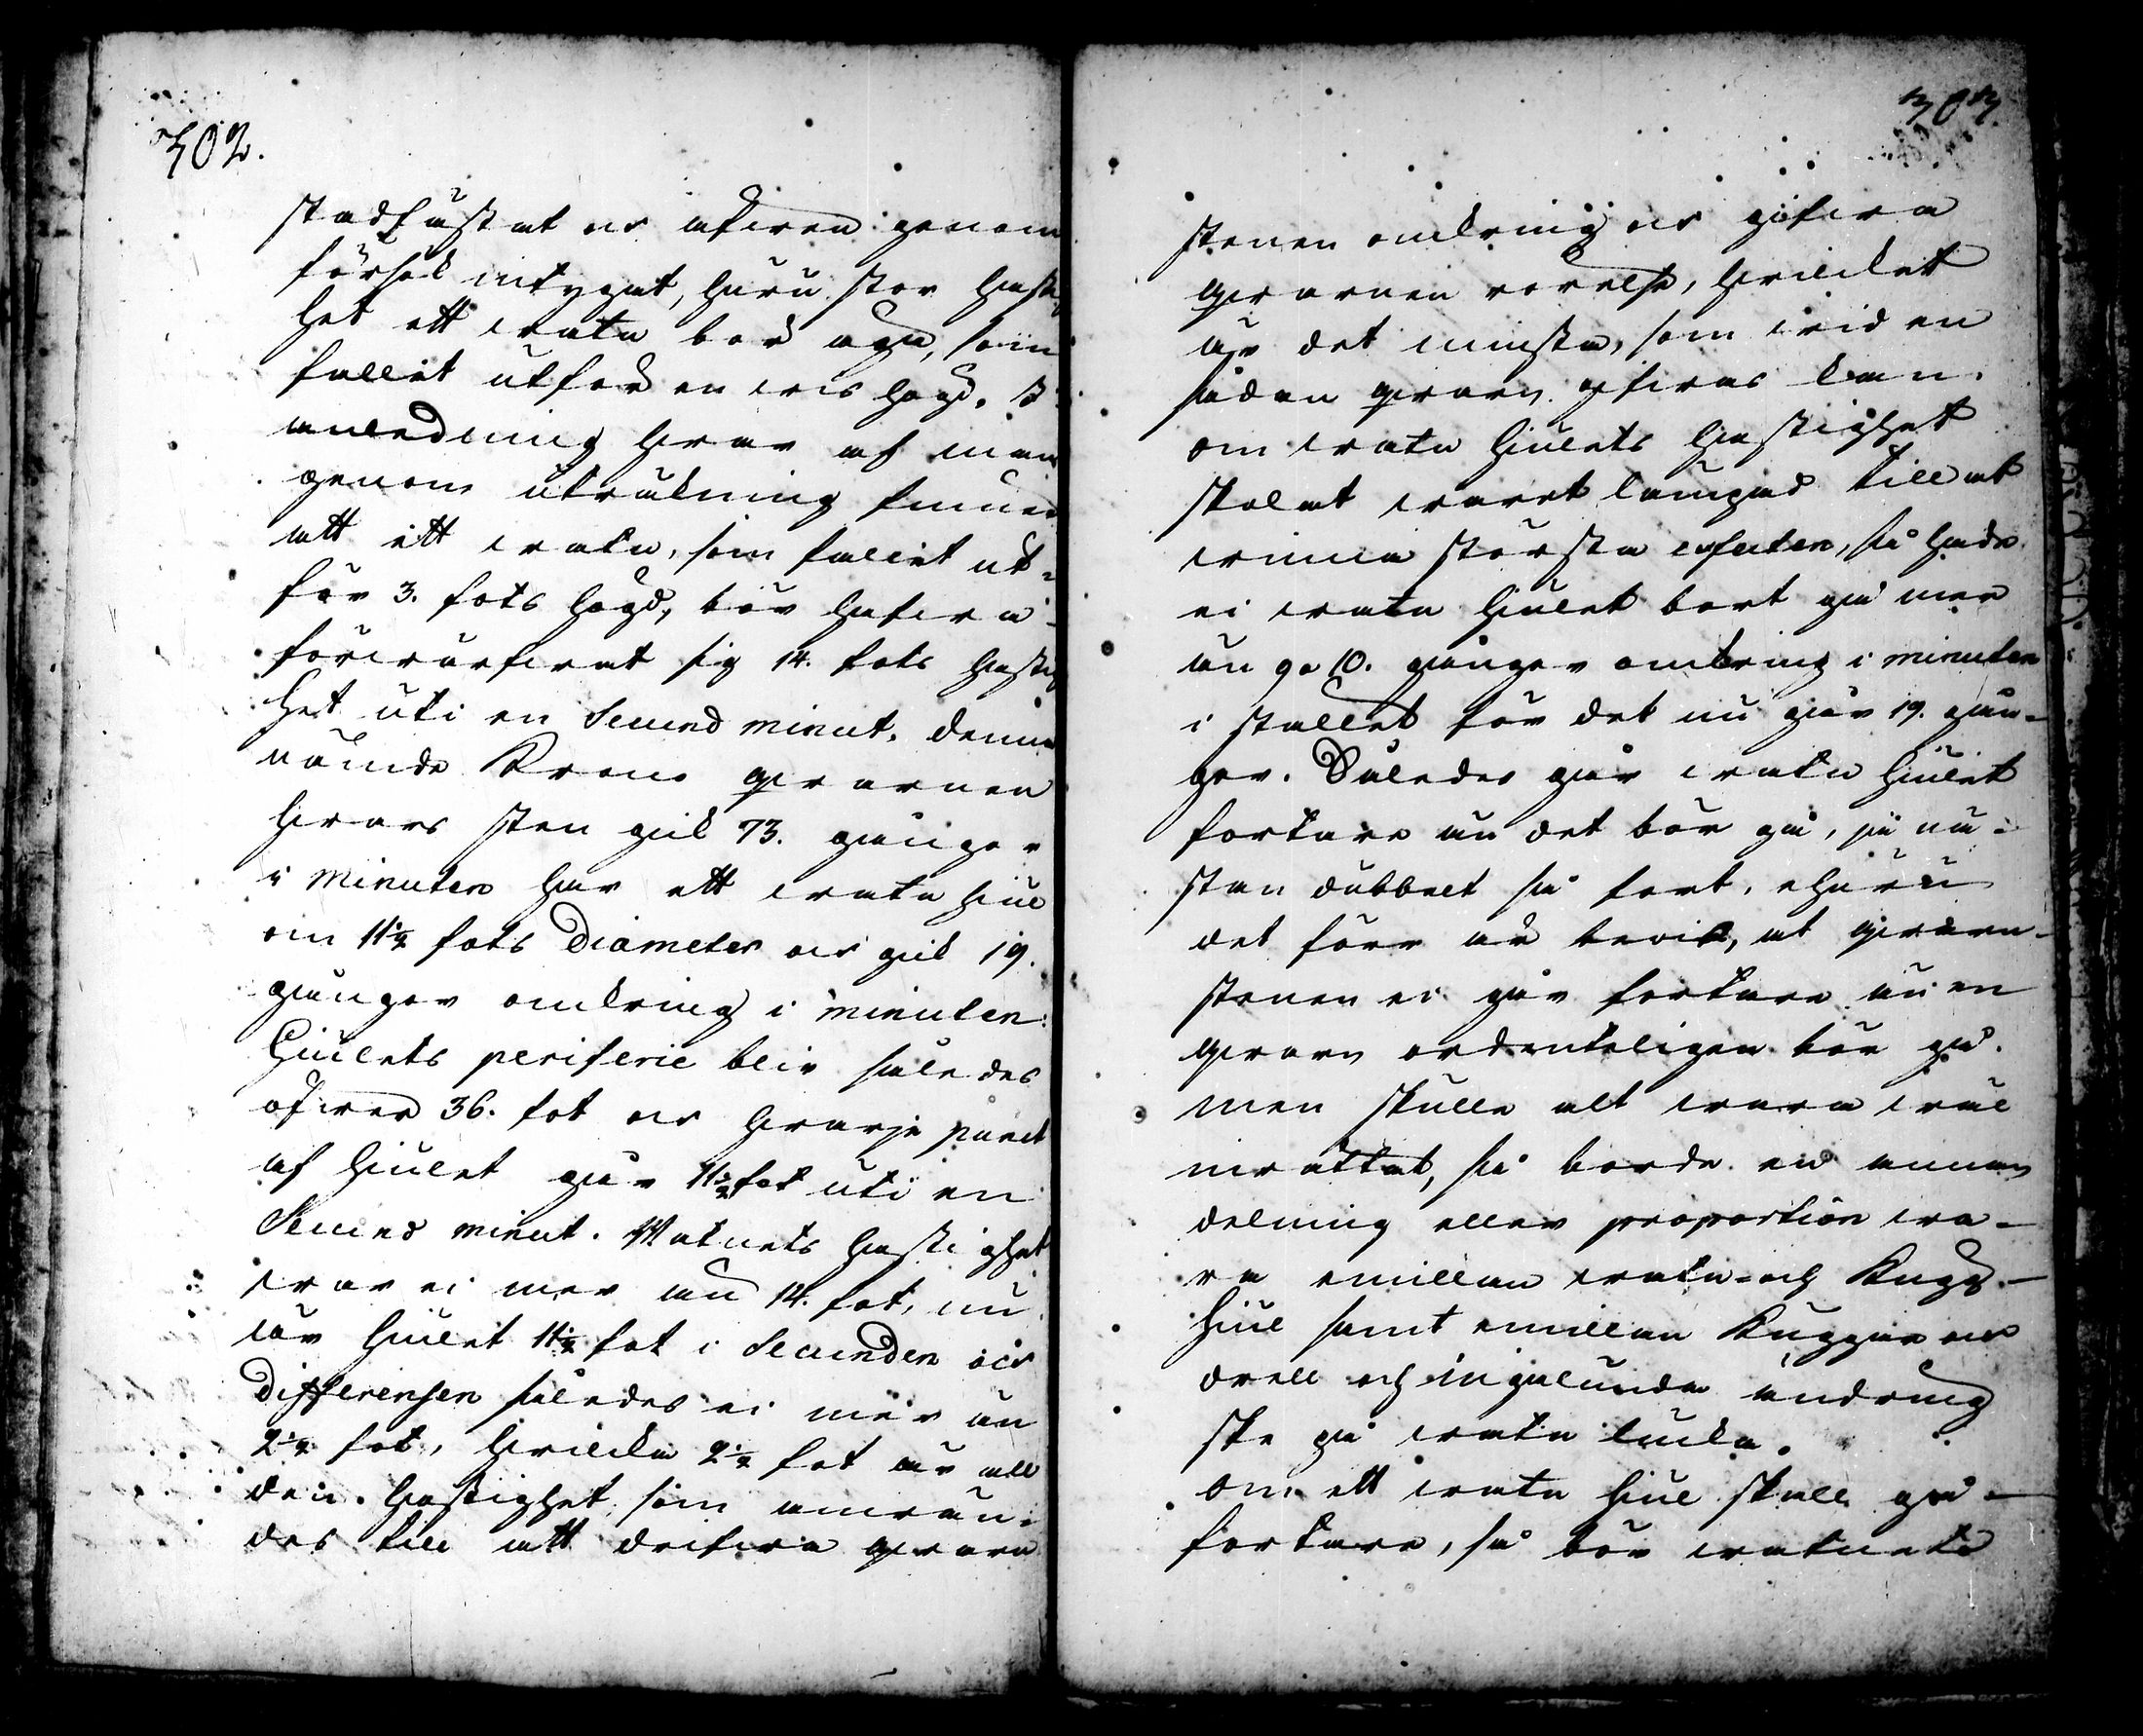 302.
stadfästat ock äfwen genom
försök intygat, huru stor hastig
het ett watn bör äga, som
fallit utför en wis högd. I
anledning hwar af man
genom uträkning finner
att ett watn, som fallit ut-
för 3. fots högd, bör hafwa
förwärfwat sig 14. fots hastig
het uti en Secund minut. denna
nämde Krono qwarnen
hwars sten gick 73. gånger
i minuten har ett watn hiul
om 11½ fots Diameter ock gick 19.
gånger omkring i minuten.
Hiulets periferie blir således
öfwer 36. fot ock hwarje punct
af hiulet går 11½ fot uti en
Secund minut. Watnets hastighet
war ei mer än 14. fot, nu
är hiulet 11½ fot i Secunden ock
Differensen således ei mer än
2½ fot, hwilka 2½ fot är all
den hastighet som anwän-
des till att drifwa qwarn
303.
stenen omkring ock gifwa
qwarnen rörelse, hwilket
är det minsta, som wid en
sådan qwarn gifwas kan.
om watn hiulets hastighet
skolat warit lämpad till at
winna största effecten, så hade
ei watn hiulet bort gå mer
än 9 a 10. gånger omkring i minuten
i stället för det nu går 19. gån-
ger. Således går watn hiulet
fortare än det bör gå, ja nä-
stan dubbelt så fort, ehuru
det förr är bewist, at qwarn-
stenen ei går fortare än en
qwarn ordenteligen bör gå.
men skulle alt wara wäl
inrättat, så borde en annan
delning eller proportion wa-
ra emillan watn- och Kugg-
hiul samt emillan Kuggar ock
drell och ingalunda ändring
ske på watn lucka.
om ett watn hiul skall gå
fortare, så bör watnets